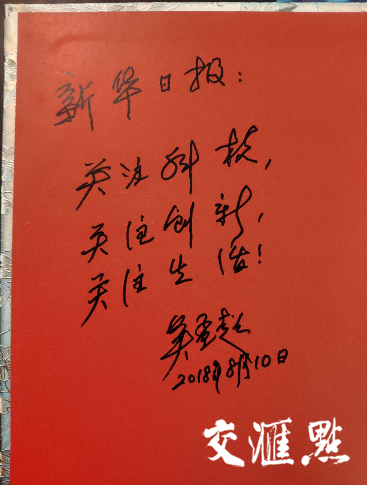 新华日报：
关注科技，
关注创新，
关注生活！
吴孟超
2018年8月10日
交汇點